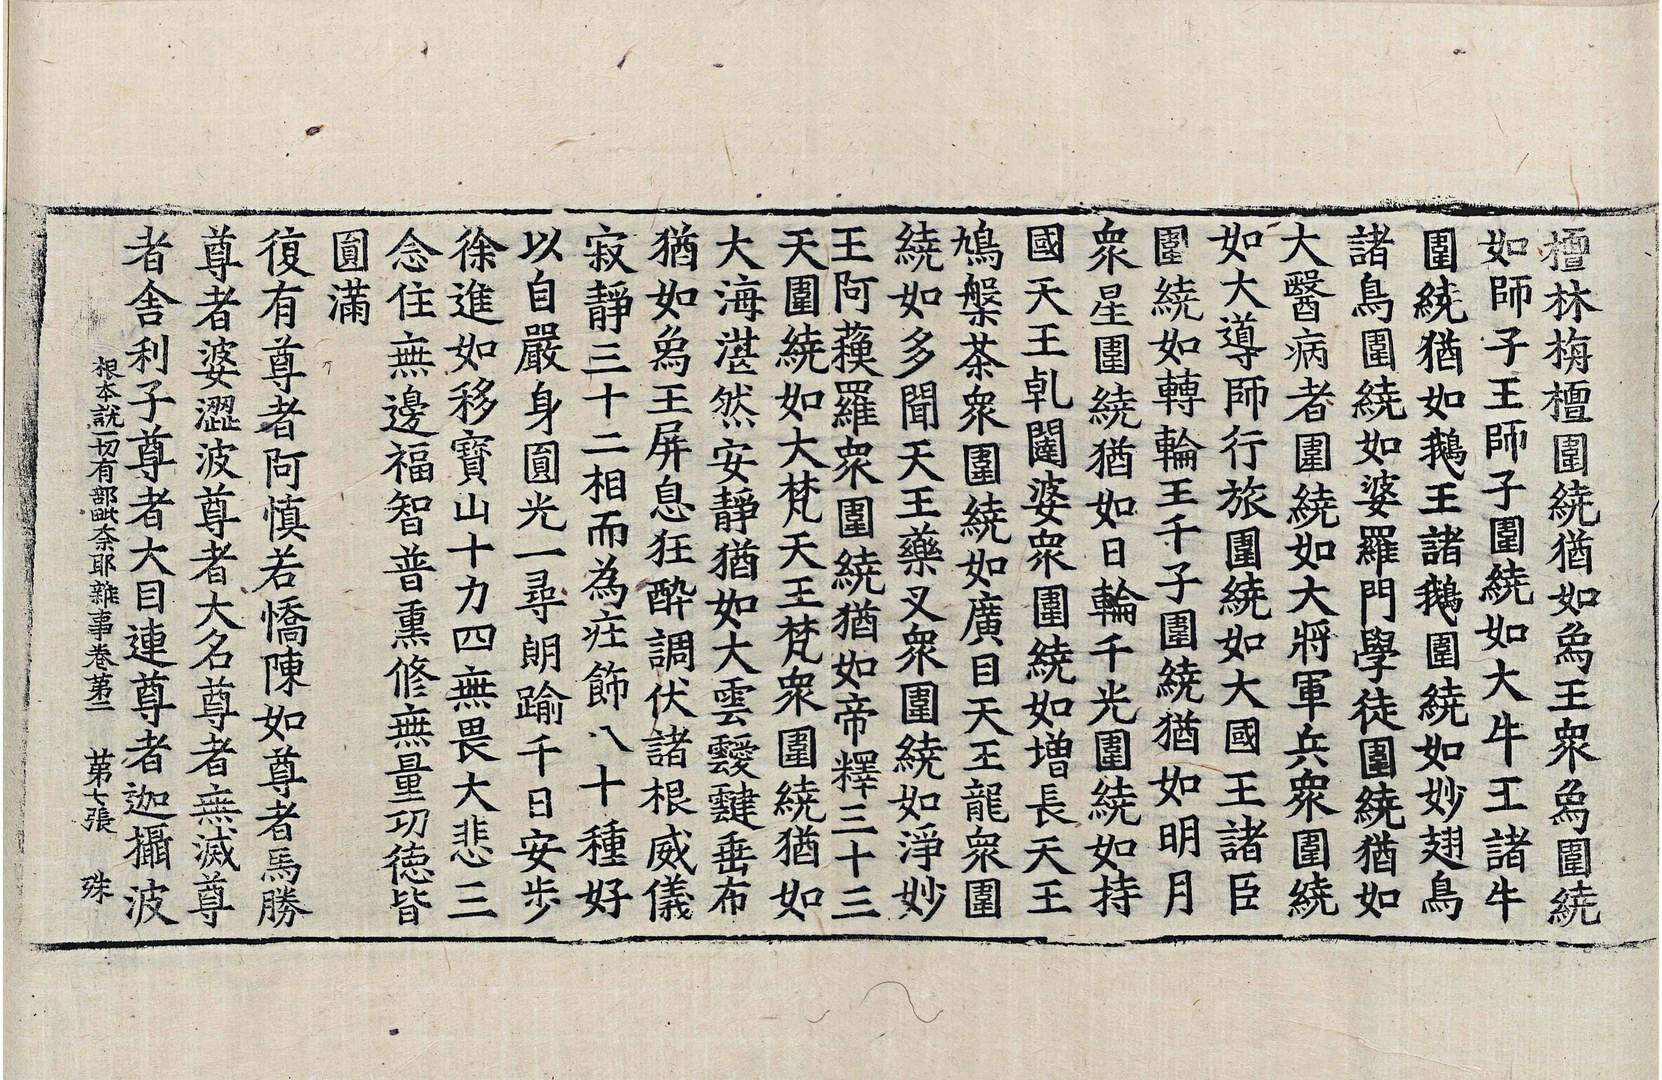 檀林栴檀圍繞猶如象王衆象圍繞
如師子王師子圍繞如大牛王諸牛
圍繞猶如鵝王諸鵝圍繞如妙翅鳥
諸鳥圍繞如婆羅門學徒圍繞猶如
大醫病者圍繞如大將軍兵衆圍繞
如大導師行旅圍繞如大國王諸臣
圍繞如轉輪王千子圍繞猶如明月
衆星圍繞猶如日輪千光圍繞如持
國天王乹闥婆衆圍繞如增長天王
鳩槃茶衆圍繞如廣目天王龍衆圍
繞如多聞天王藥叉衆圍繞如淨妙
王阿蘇羅衆圍繞猶如帝釋三十三
天圍繞如大梵天王梵衆圍繞猶如
大海湛然安靜猶如大雲靉靆垂布
猶如象王屏息狂醉調伏諸根威儀
寂靜三十二相而為莊飾八十種好
以自嚴身圓光一尋朗踰千日安步
徐進如移寶山十力四無畏大悲三
念住無邊福智普熏修無量功德皆
圓滿
復有尊者阿慎若憍陳如尊者馬勝
尊者婆澀波尊者大名尊者無滅尊
者舍利子尊者大目連尊者迦攝波
根本說一切有部毗奈耶雜事卷第二 第七張 殊